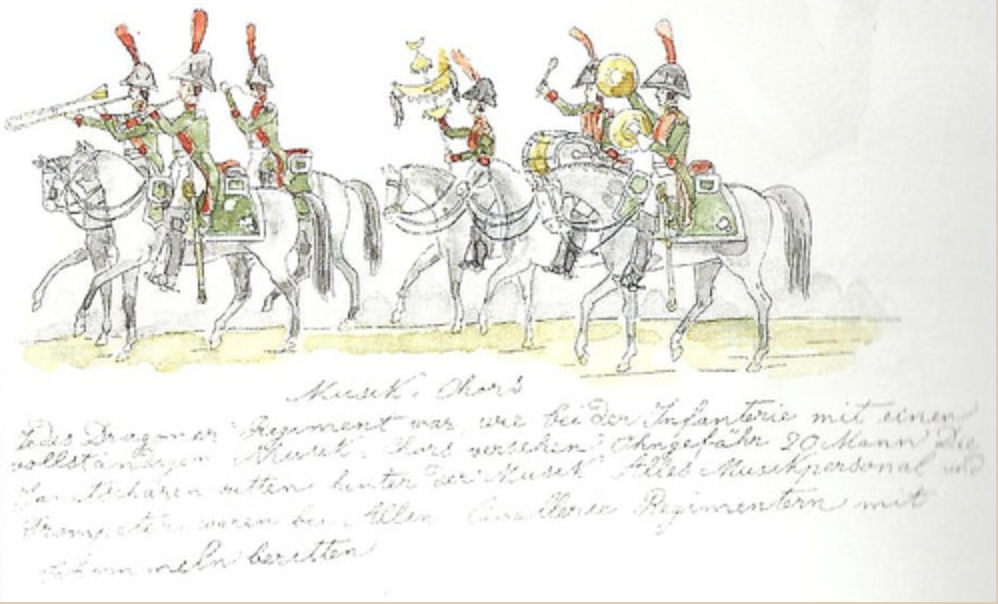 Musik. Chors
Jedes Dragoner Regiment war, wie bei der Infanterie mit einen
vollständigen Musik. Chors versehen Ohngefahr 20 Mann Die
Jantscharen ritten hinter der Musik Alles Musikpersonal und
Trompeter waren bei Allen Cavallerie Regimentern mit
Schimmeln beritten